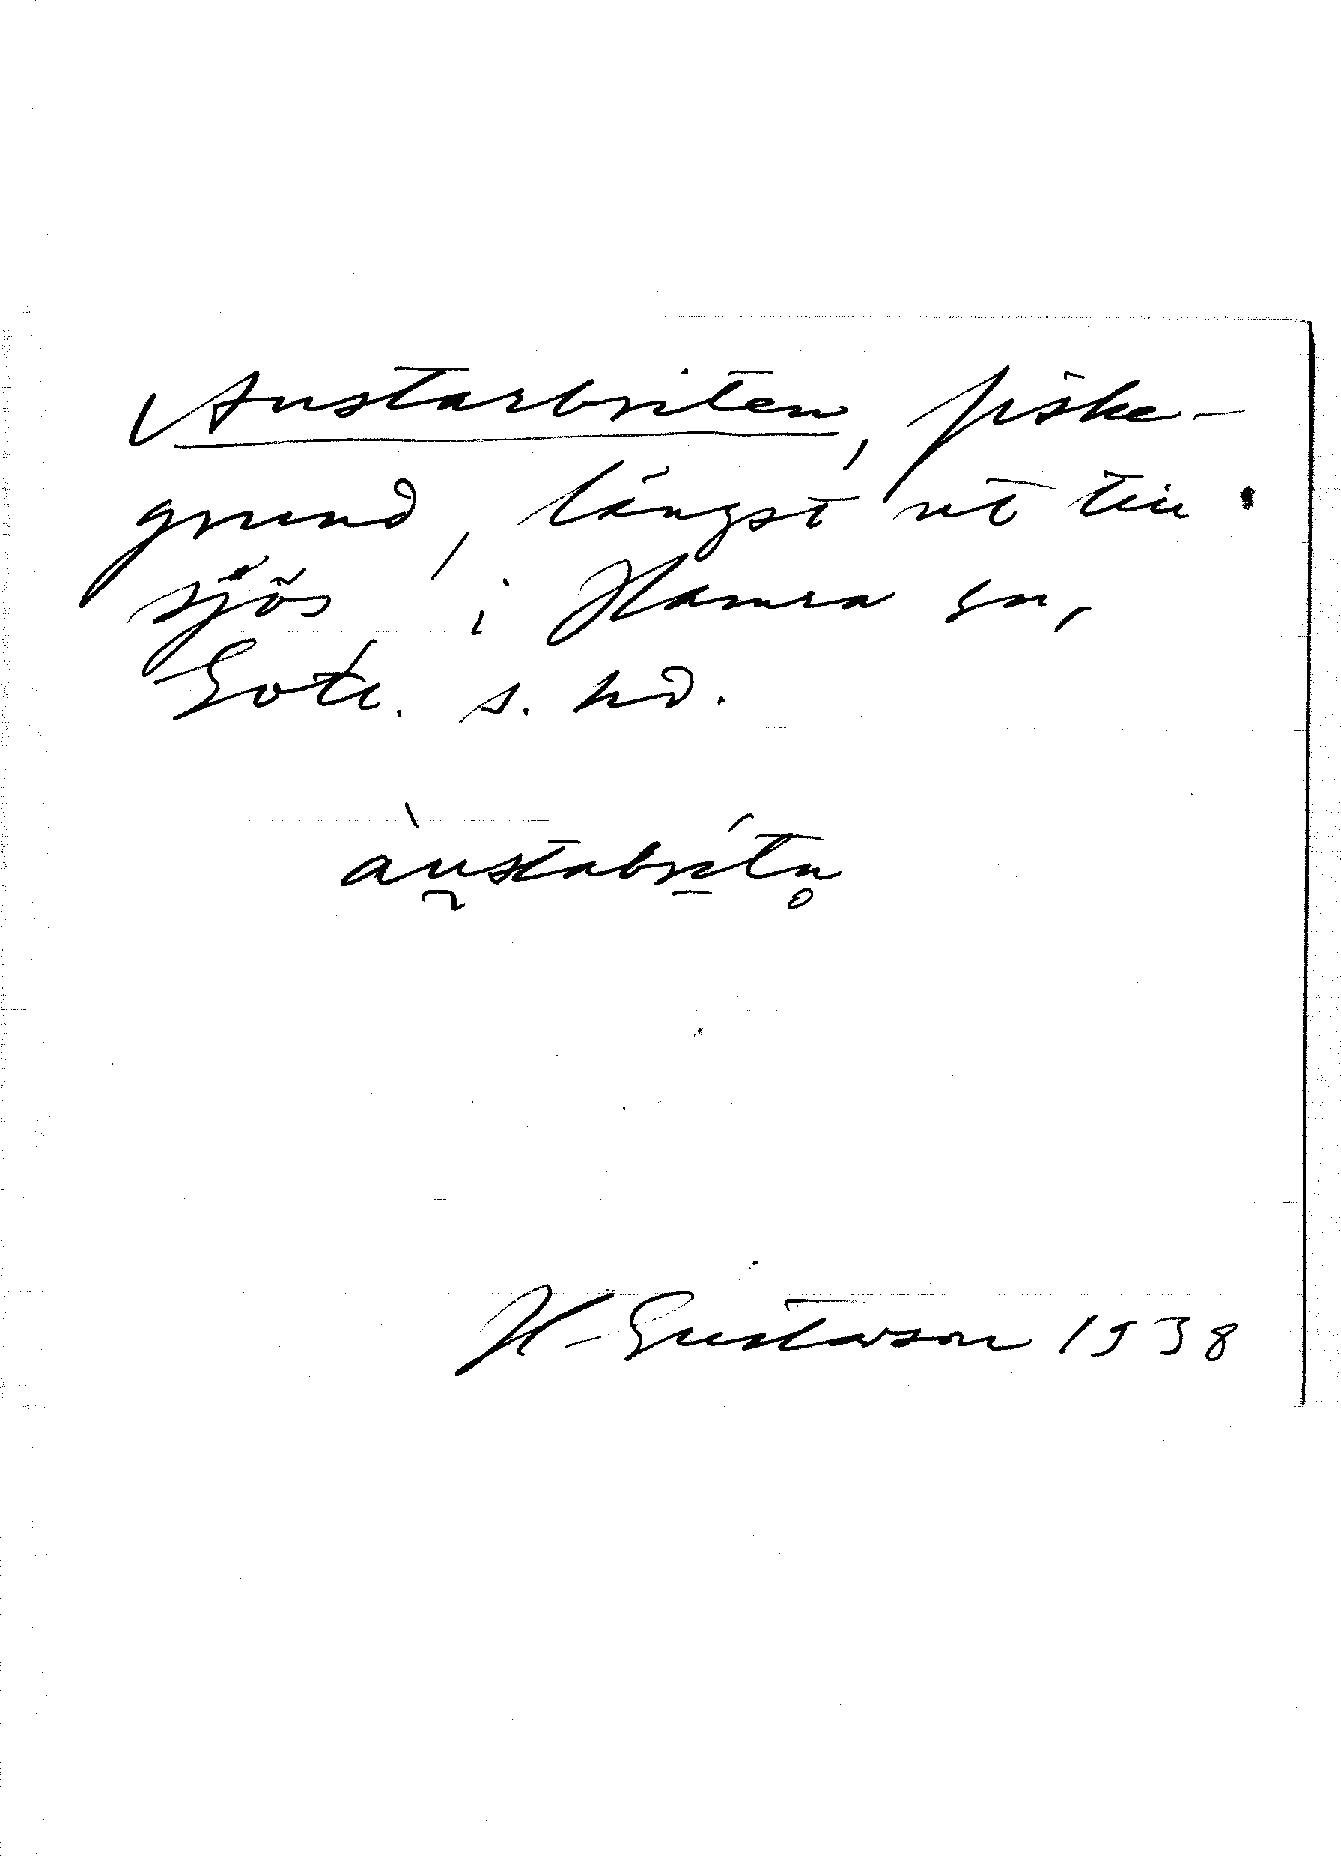 Austarbriten, fiske-
grund, längst ut till
sjös i Hamra sn,
Gotl. s. hd.
àu̯stabrítn̥
H. Gustavson 1938